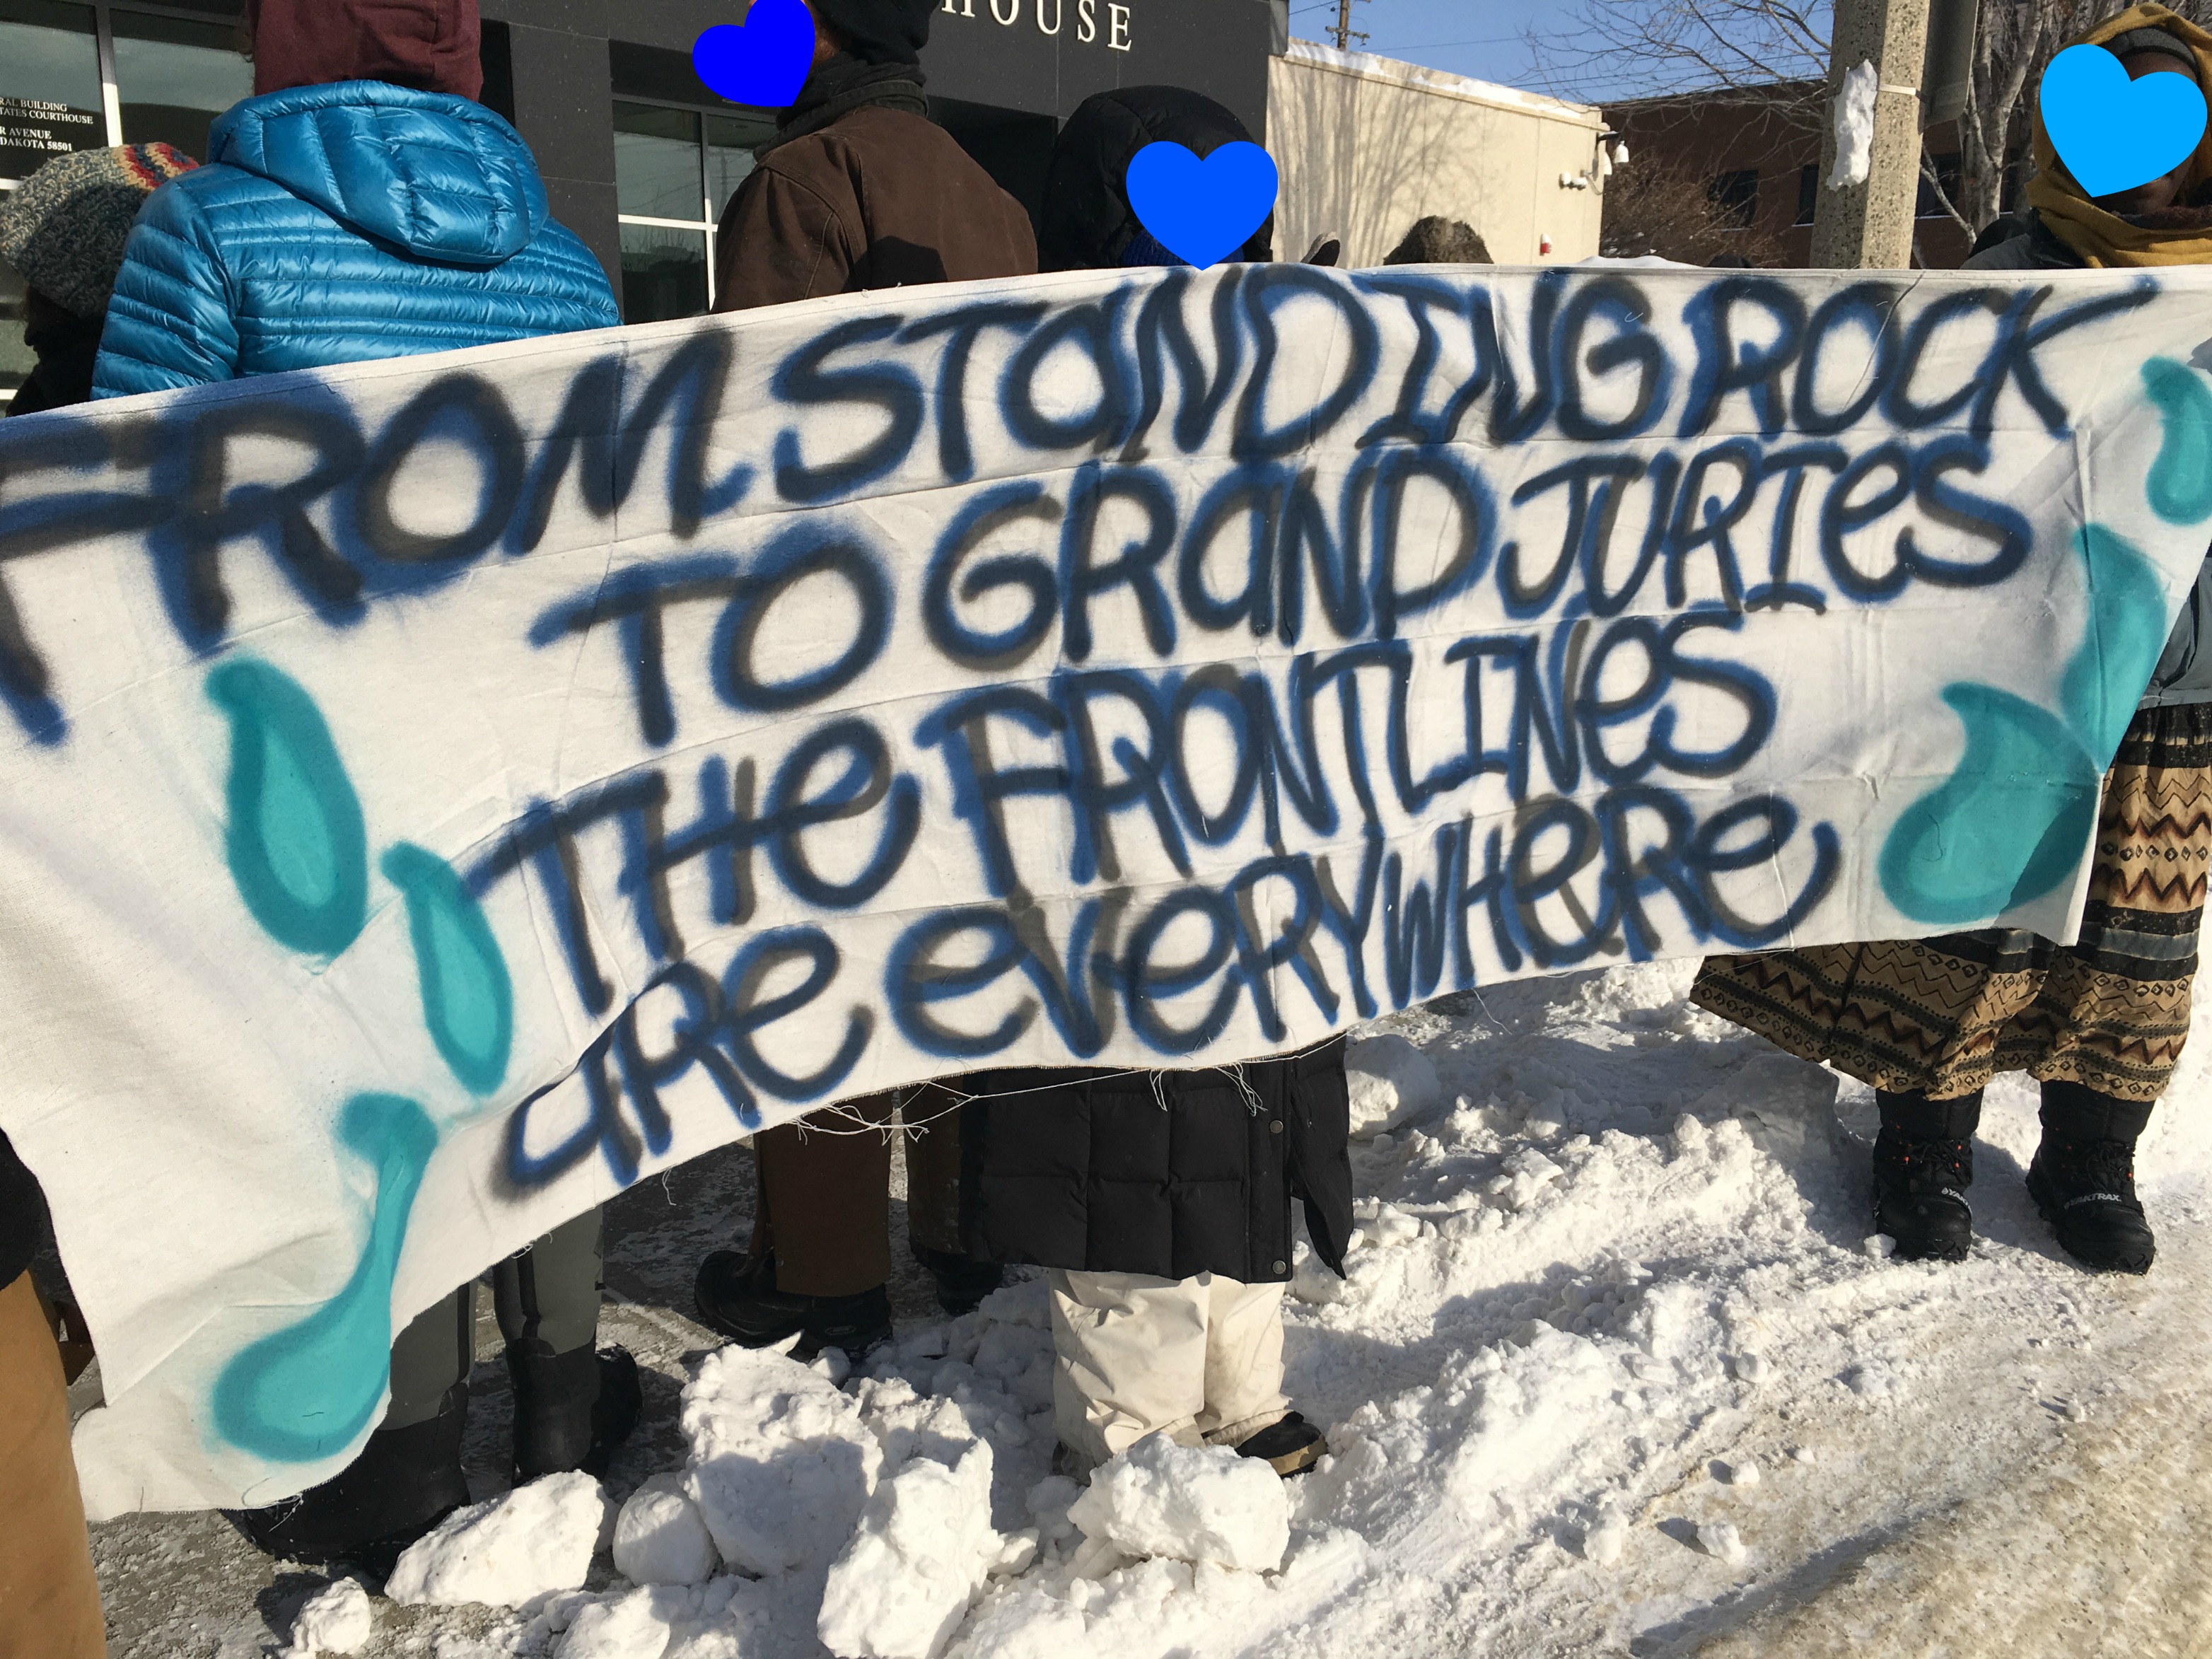 HOUSE
RAL BUILDING
TATES COURTHOUSE
R AVENUE
DAKOTA 58501
FROM STaNDING ROCK
TO GRaND JURIeS
THe FRONTLINeS
aRe eVeRYWHeRe
YAKTRAX